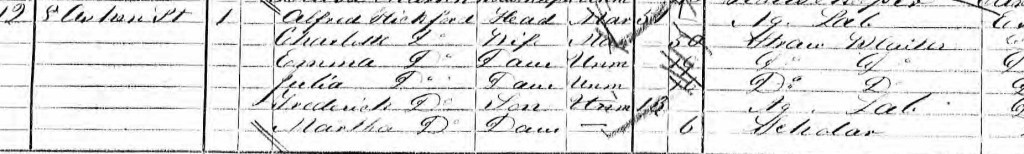 12 St 1 Alfred Head Mar 51 Ag. Lab
Charlotte Do Wife Mar 50 Straw Plaiter
Emma Do Daur Unm 19 Do Do
Julia Do Daur Unm Do Do
Frederick Do Son Unm 13 Ag. Lab
Martha Do Daur — 6 Scholar